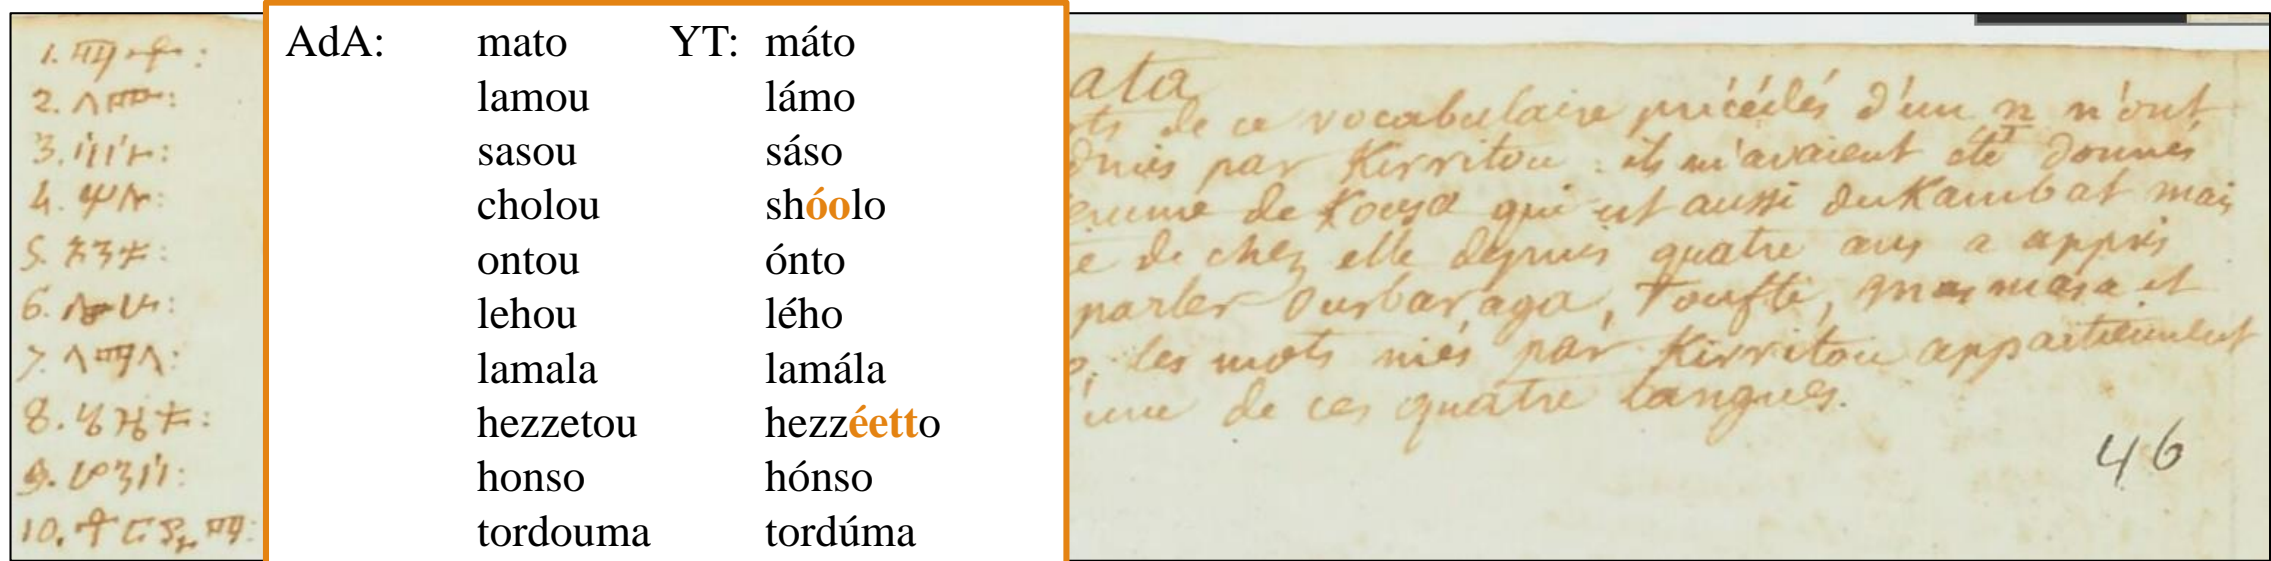 1. ማቶ:
2. ላሙ:
3. ሳሱ:
4. ሾሉ:
5. ኦንቱ:
6. ሌሁ:
7. ላማላ:
8. ሄዜቱ:
9. ሆንሶ:
10. ቶርዱማ:
AdA: mato YT: máto
lamou lámo
sasou sáso
cholou shóolo
ontou ónto
lehou lého
lamala lamála
hezzetou hezzéetto
honso hónso
tordouma tordúma
ata
ots de ce vocabulaire précédés d'un n n'ont
par Kirritou : ils m'avaient été donnés
emme de qui est aussi du Kambat mais
e de chez elle depuis quatre ans a appris
parler Ourbaraga, et
les mots niés par Kirritou appartiennent
une de ces quatre langues.
46